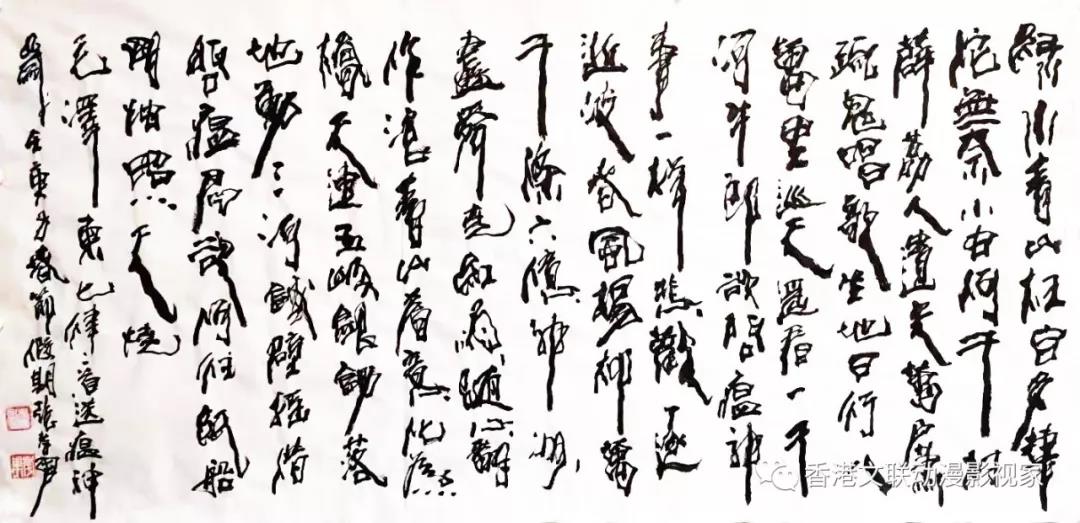 绿水青山枉自多華
佗無奈小虫何千村
薜荔人遺矢萬户萧
疏鬼唱歌坐地日行八
萬里巡天遥看一千
河牛郎欲問瘟神
事一様悲歡逐
逝波春風楊柳萬
千條六億神州
盡舜尧紅雨随心翻
作浪青山着意化為
橋天連五嶺銀鋤落
地動三河鐵臂摇借
問瘟君欲何往紙船
明燭照天燒
毛澤東七律二首送瘟神
庚子春節假期張
香港文联动漫影视家